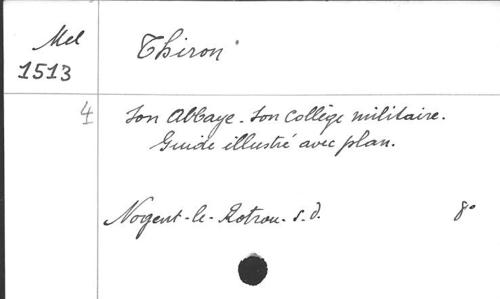 Mel
1513
4
Thiron
Son Abbaye. Son Collège militaire.
Guide illustré avec plan.
Nogent-le-Rotrou. s.d. 8°